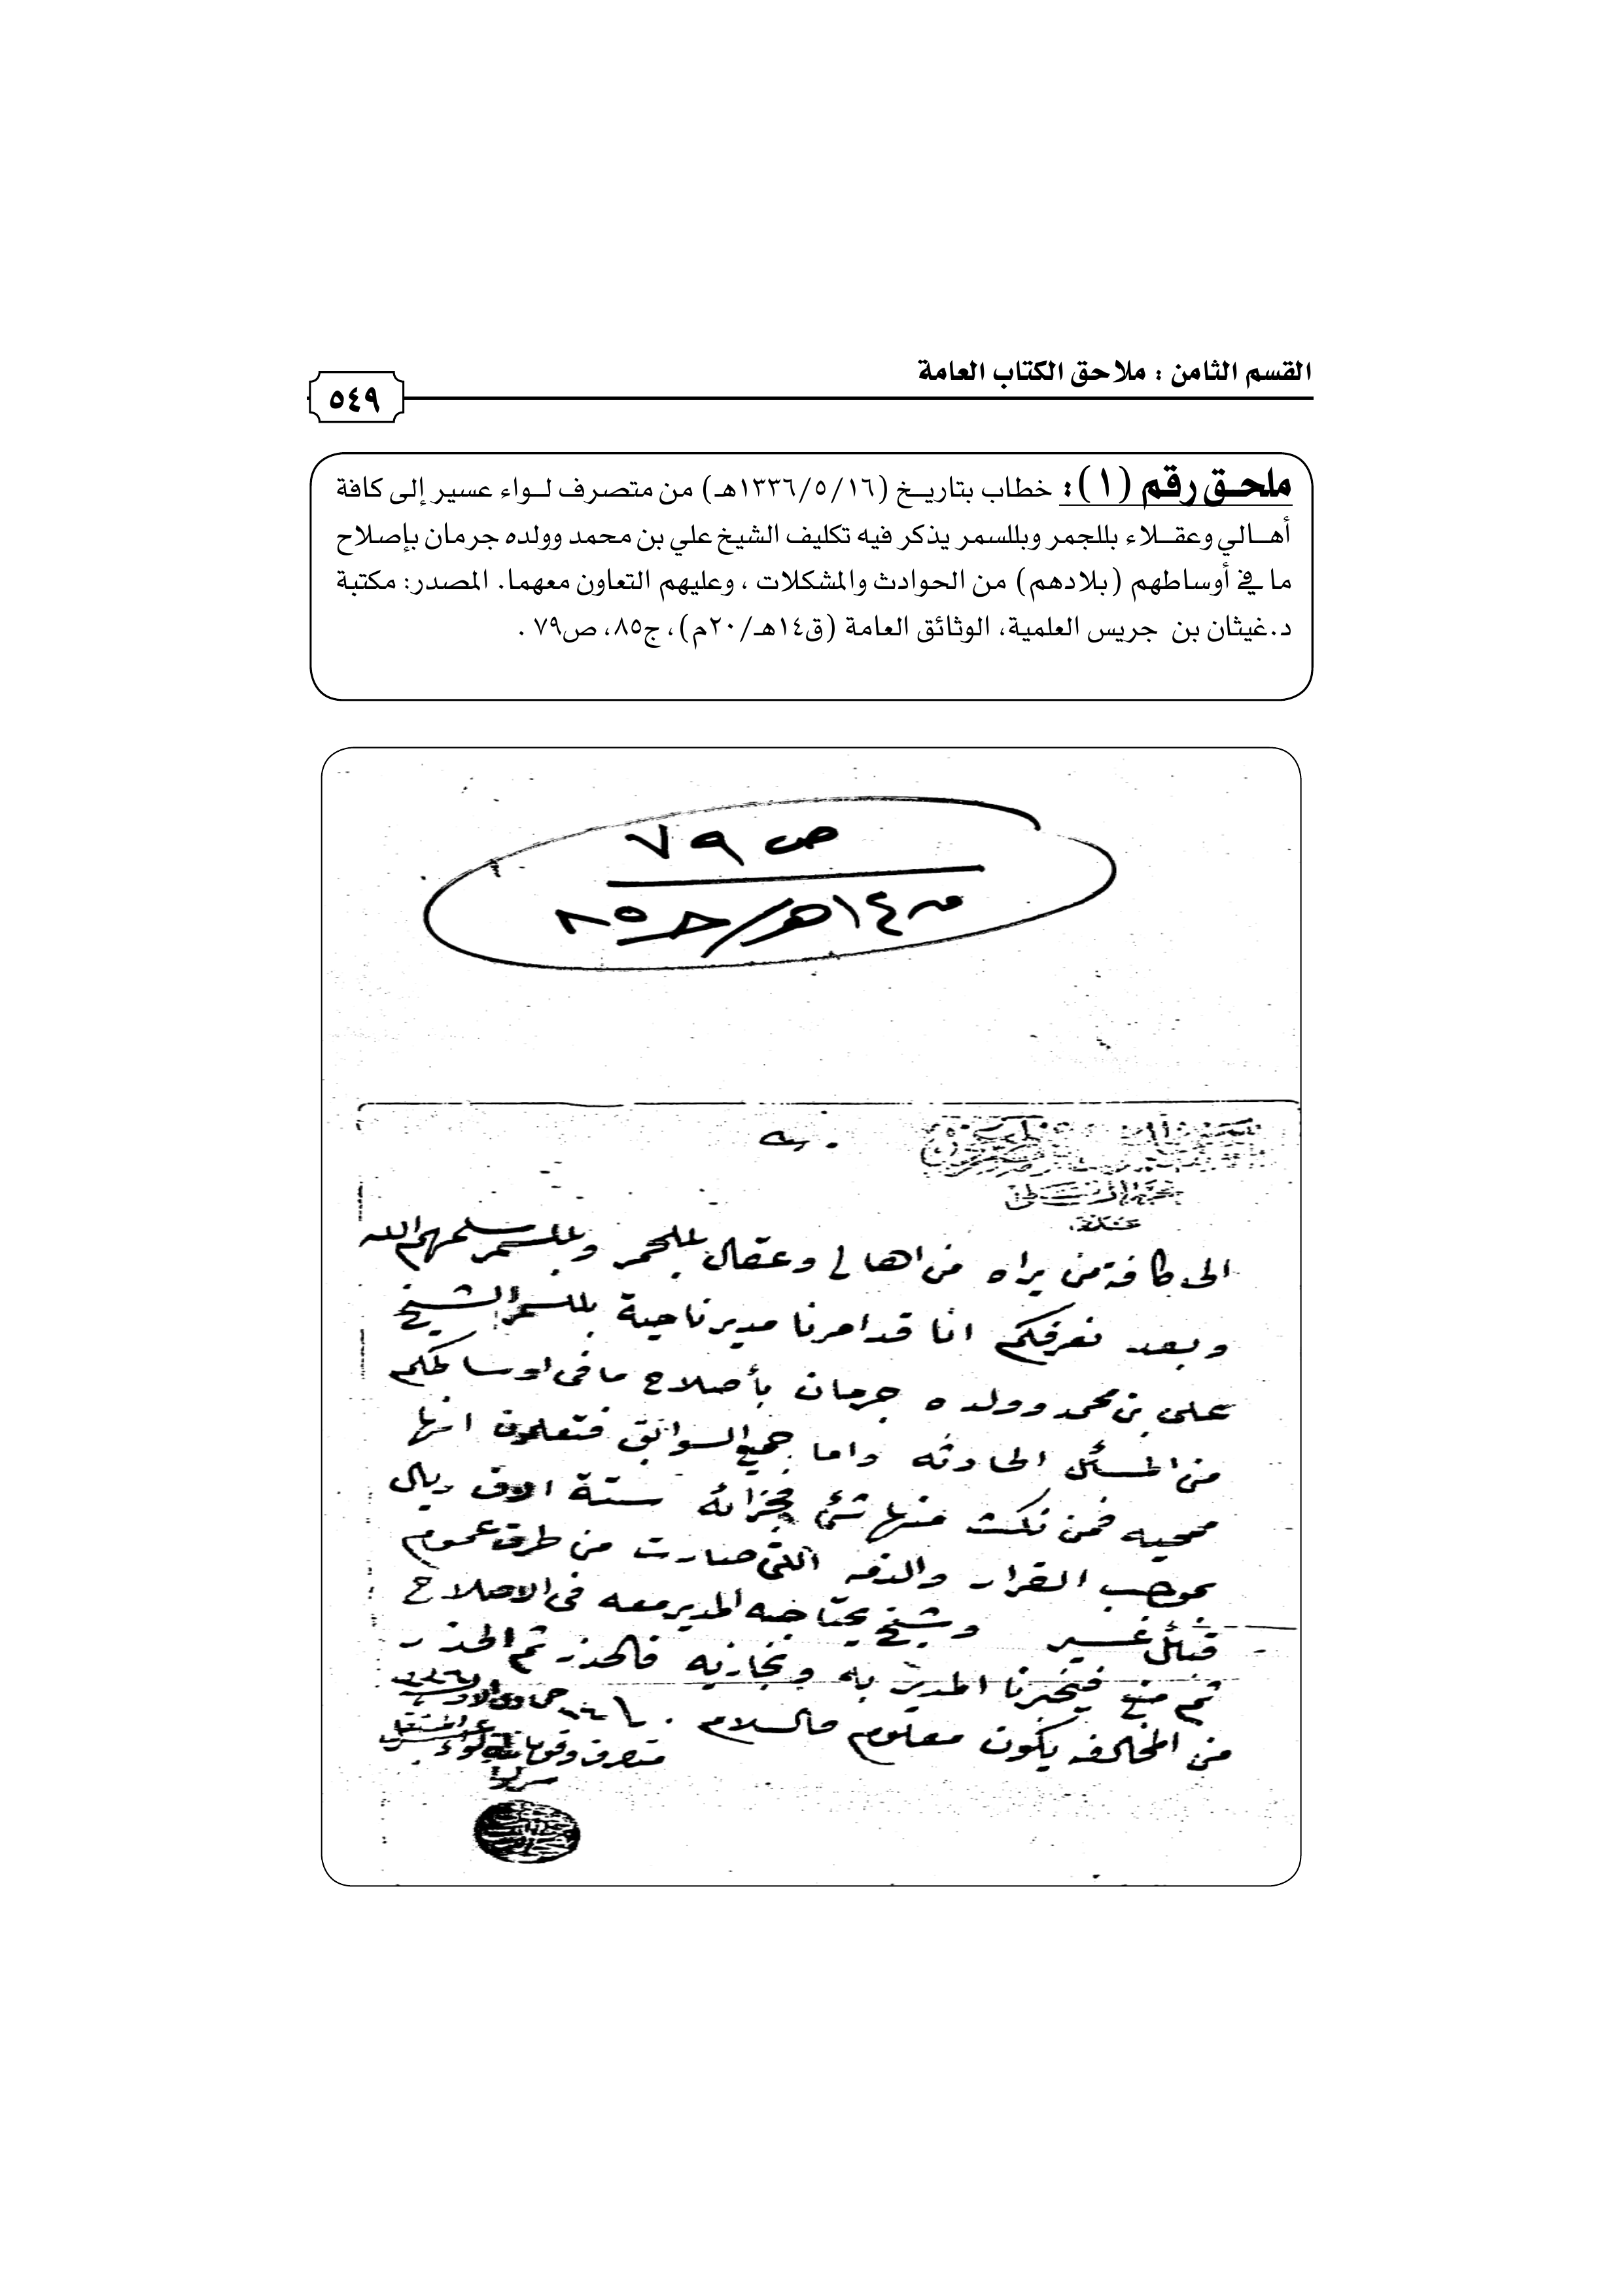 القسم الثامن : ملاحق الكتاب العامة
٥٤٩
ملحق رقم (١): خطاب بتاريخ (١٣٣٦/٥/١٦هـ) من متصرف لواء عسير إلى كافة
أهالي وعقلاء بللجمر وبللسمر يذكر فيه تكليف الشيخ علي بن محمد وولده جرمان بإصلاح
ما في أوساطهم (بلادهم) من الحوادث والمشكلات ، وعليهم التعاون معهما. المصدر: مكتبة
د.غيثان بن جريس العلمية، الوثائق العامة (ق١٤هـ/٢٠م)، ج٨٥، ص٧٩ .
ص ٧٩
ق ١٤هـ/جـ ٨٥
الى كافة من يراه من اهالي وعقال بللحمر وبللسمر سلمهم الله
وبعد نعرفكم انا قد امرنا مدير ناحية بللسمر الشيخ
على بن محمد وولده جرمان بأصلاح ما فى اوساطكم
من المسئل الحادثه واما جميع السوابق فتعلمون انها
محيه فمن نكث منها شئ فجزائه ستة الاف ريال
بموجب القرار والذمه اللتى صارت من طرف عموم
قبائل عسير وشيخ يحتاجه المدير معه فى الاصلاح
ثم منع فيخبرنا المدير به ونجازيه فالحذر ثم الحذر
من المخالفه يكون معلوم والسلام
متصرف